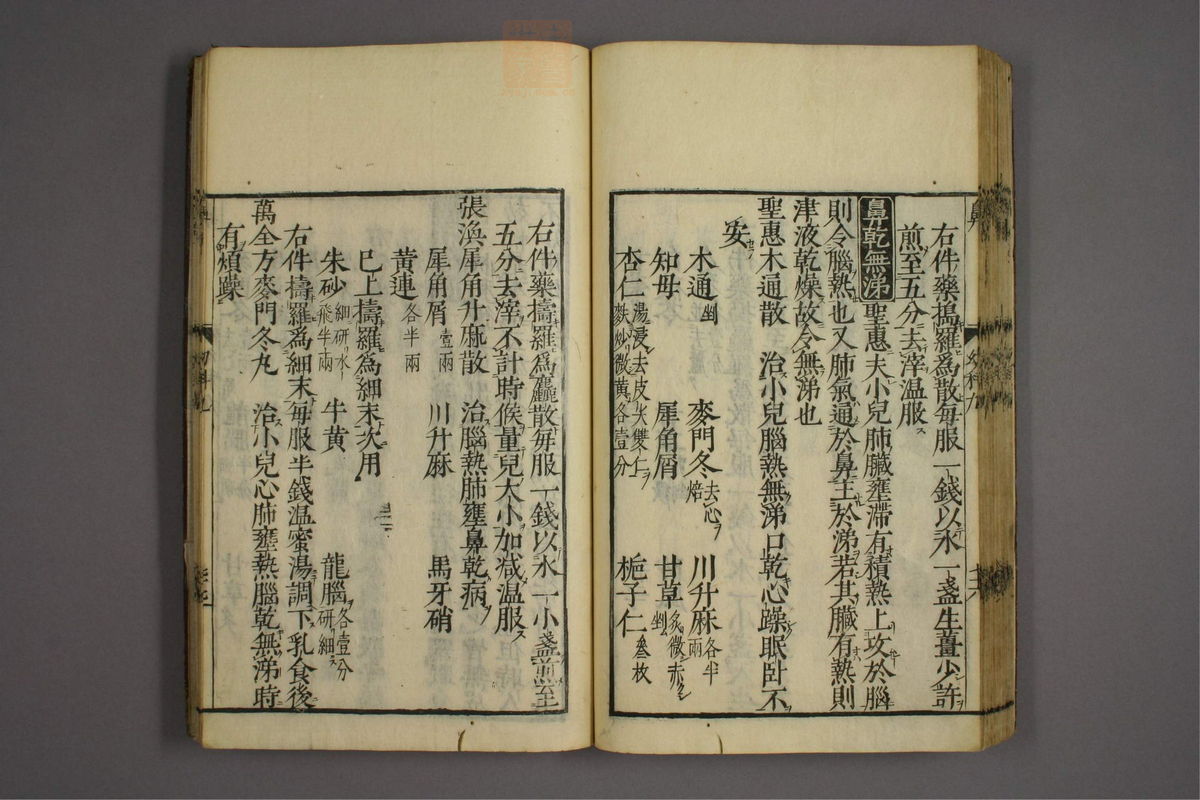 右件藥搗羅爲散每服一錢以水一盞生薑少許
煎至五分去滓温服
鼻乾無涕 聖惠夫小兒肺臟壅滯有積熱上攻於腦
則令腦熱也又肺氣通於鼻主於涕若其臟有熱則
津液乾燥故令無涕也
聖惠木通散 治小兒腦熱無涕口乾心躁眠卧不
安
木通剉 麥門冬去心焙 川升麻各半兩
知母 犀角屑 甘草炙微赤剉
杏仁湯浸去皮尖雙仁麩炒微黄各壹分 梔子仁叁枚
右件藥擣羅爲麤散每服一錢以水一小盞煎至
五分去滓不計時候量兒大小加减温服
張渙犀角升麻散 治腦熱肺壅鼻乾病
犀角屑壹兩 川升麻 馬牙硝
黄連各半兩
已上擣羅爲細末次用
朱砂細研水飛半兩 牛黄 龍腦各壹分研細
右件擣羅爲細末每服半錢温蜜湯調下乳食後
萬全方麥門冬丸 治小兒心肺壅熱腦乾無涕時
有煩躁